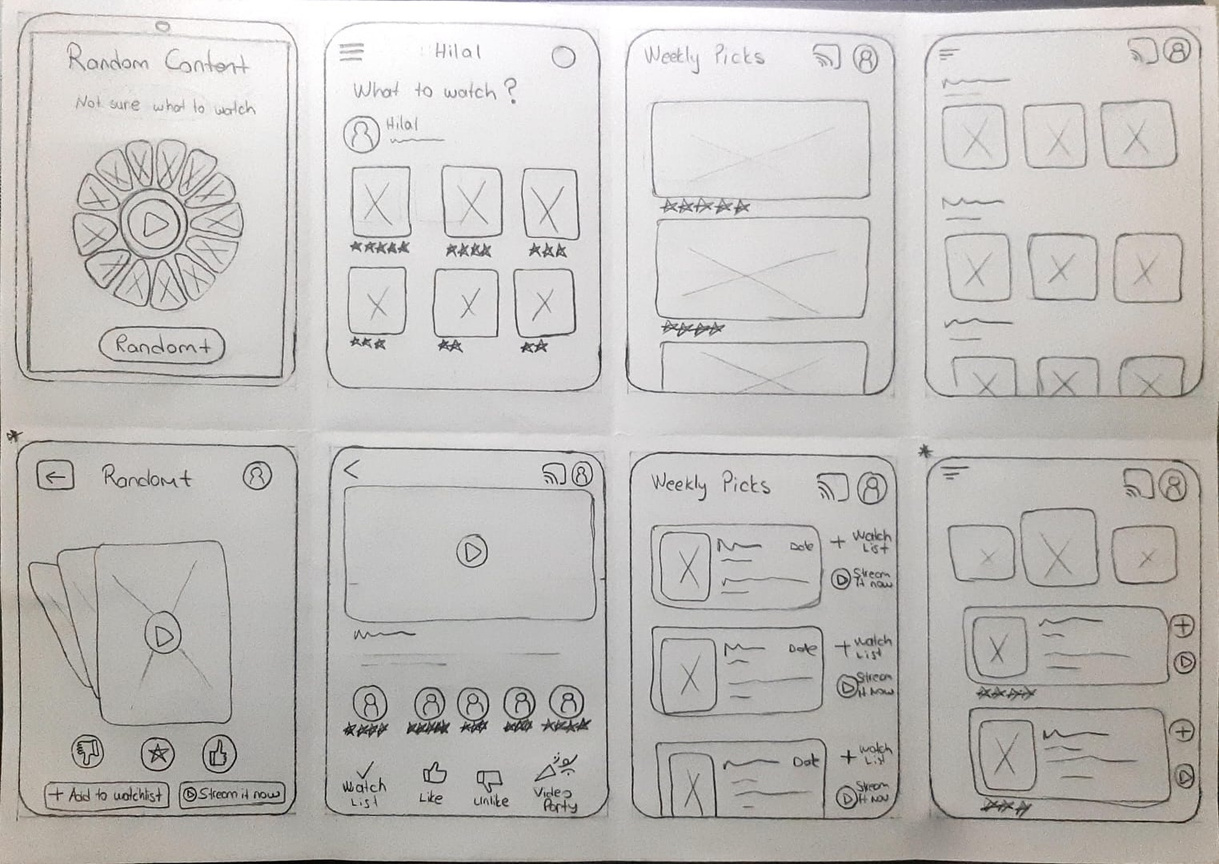 Random Content
Not sure what to watch
Random+
Hilal
What to watch?
Hilal
Weekly Picks
Random+
+ Add to watchlist
Stream it now
Watch
List
Like
Unlike
Video
Party
Weekly Picks
Date
+ Watch
List
Stream
It now
Date
+ Watch
List
Stream
it now
Date
+ Watch
List
Stream
it now